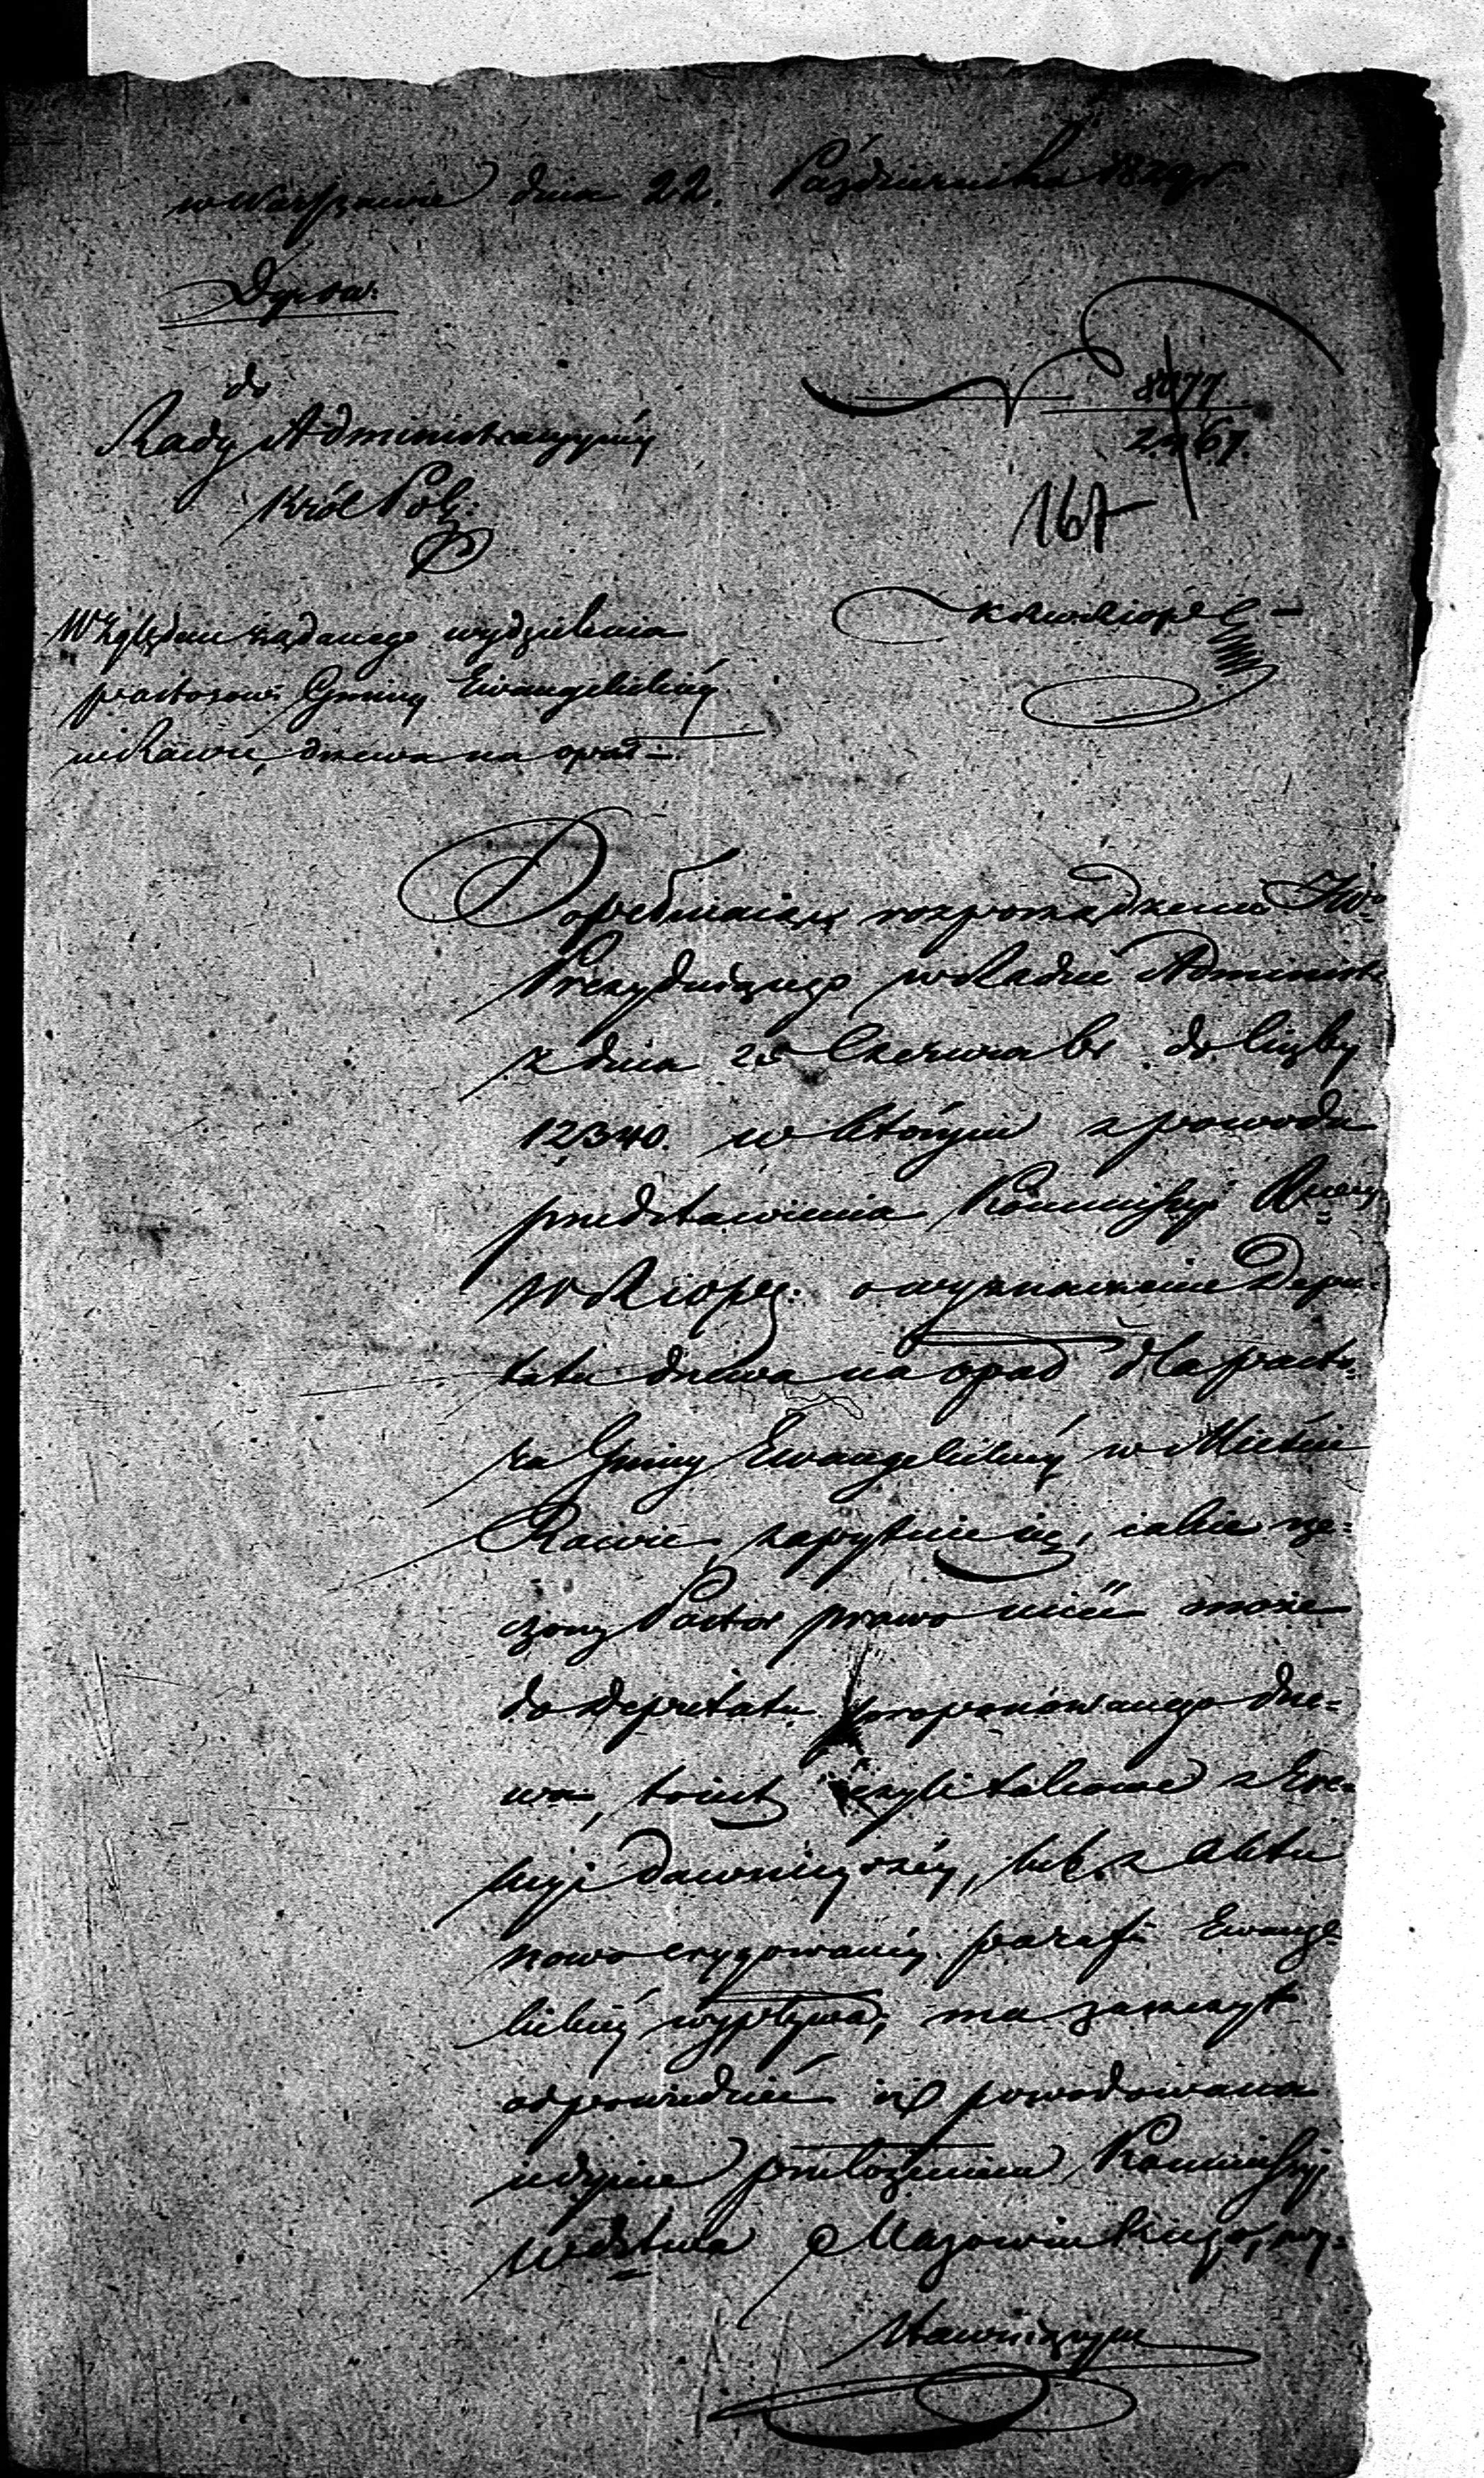 w Warszawie dnia 22. Października 1829 r
Dyrow.
do
Rady Administracyjney
Król Pols:
8477
2467.
167
Względem żądanego wydzielenia
pastorowi Gminy Ewangelickiéy
w Rawie, drzewa na opał —
KRWRiOPs —
Dopełniaiąc rozporządzenia JW°
Prezyduiącego w Radzie Administ
z dnia 25 Czerwca br do liczby
12,340. w którym z powodu
przedstawienia Kommissyi Rząd
W Riops: o wyznaczenie Depu=
tatu drzewa na opał dla pasto
ra Gminy Ewangelickiéy w Mieście
Rawie, zapytuie się, iakie rze=
czony Pastor prawo mieć może
do deputatu proponowanego drze=
wa, to iest czyli takowe z Ere=
kcyi dawnieyszéy, lub z Aktu
nowo erygowanéy parafii Ewange
lickiéy wypływa; ma zaszczyt
odpowiedzieć iż powodowana
iedynie przełożeniem Kommissyi
Wdztwa Mazowieckiego, wy=
stawuiącym